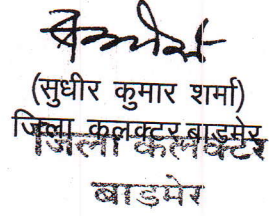 (सुधीर कुमार शर्मा)
जिला कलक्टर,बाड़मेर
जिला कलेक्टर
बाड़मेर